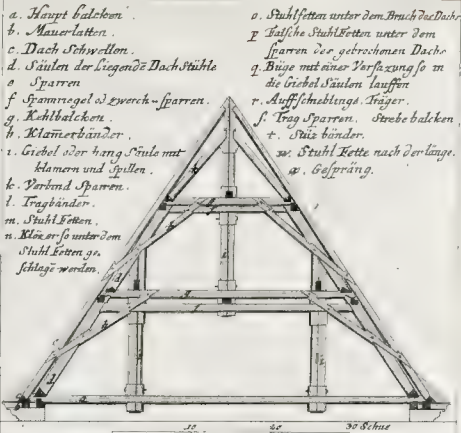 a. Haupt balcken.
b. Mauerlatten.
c. Dach Schwellen.
d. Säulen der Liegendē Dach Stühle
e Sparren
f Spannriegel od zwerch-sparren.
g. Kehlbalcken.
h. Klam̄erbänder.
i. Giebel oder hang Säule mit
klamern und
k. Verbind Sparren.
l. Tragbänder.
m. Stuhl Fetten.
n. Klöz er so unter dem
Stuhl Fetten ge-
schlagē werden.
o. Stuhlfetten unter dem Bruch des Dachs
p Falsche Stuhl Fetten unter dem
sparren des gebrochenen Dachs
q. Büge mit einer Versazung so in
die Giebel Säulen lauffen
r. Auffschieblings Träger.
s. Trag Sparren. Strebe balcken
t. Stüz bänder.
w. Stuhl Fette nach der länge.
x. Gespräng.
10 20 30 Schue